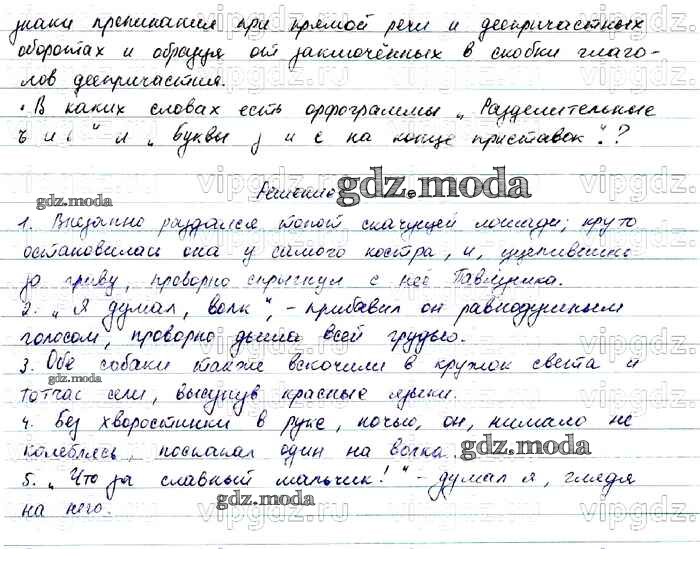 знаки препинания при прямой речи и деепричастных
оборотах и образуя от заключённых в скобки глаго-
лов деепричастия.
• В каких словах есть орфограммы „Разделительные
ъ и ь" и „Буквы з и с на конце приставок".?
Решение
gdz.moda
1. Внезапно раздался топот скачущей лошади; круто
остановилась она у самого костра, и, уцепившись
за гриву, проворно спрыгнул с неё Павлушка.
2. „Я думал, волк", - прибавил он равнодушным
голосом, проворно дыша всей грудью.
3. Обе собаки также вскочили в кружок света и
тотчас сели, высунув красные языки.
4. Без хворостинки в руке, ночью, он, нимало не
колеблясь, поскакал один на волка.
5. „Что за славный мальчик!" - думал я, глядя
на него.